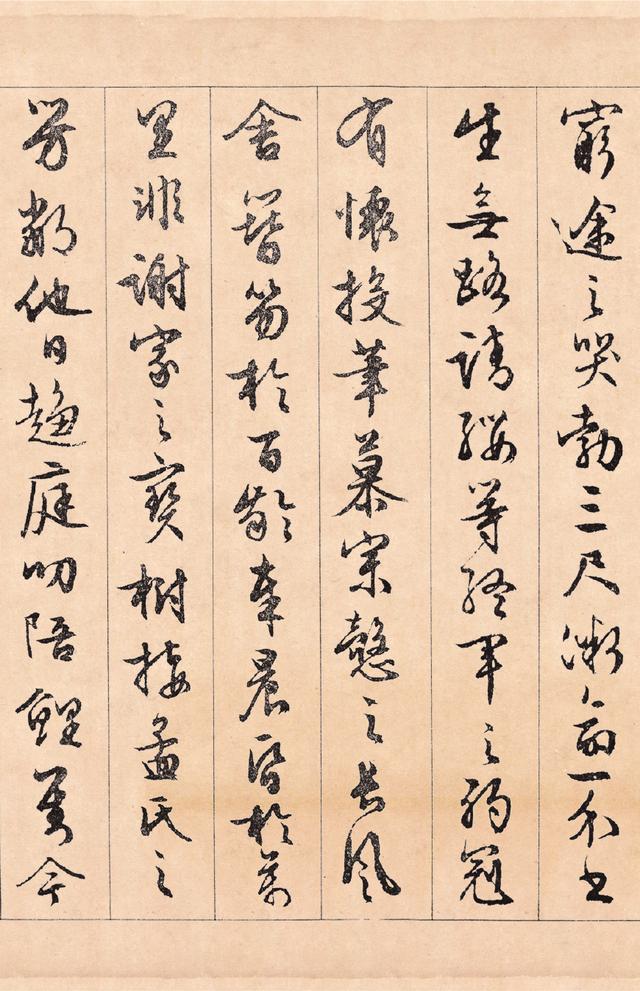 窮途之哭勃三尺微命一介書
生無路請纓等終軍之弱冠
有懷投筆慕宗愨之長風
舍簪笏於百齡奉晨昏於萬
里非謝家之寶樹接孟氏之
芳鄰他日趨庭叨陪鯉對今